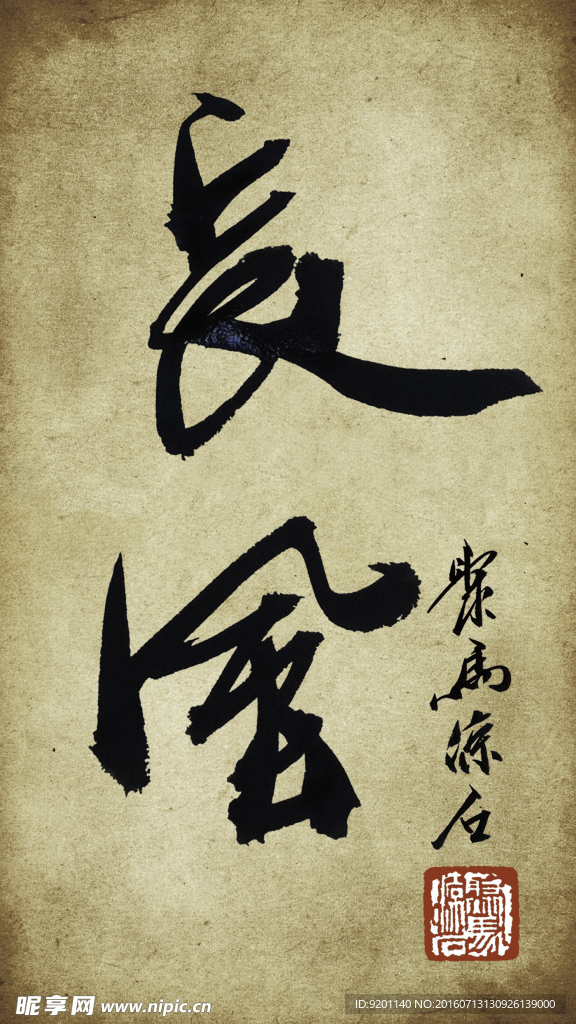 長風
驟馬流石
昵享网 www.nipic.cn
ID:9201140 NO:20160713130926139000